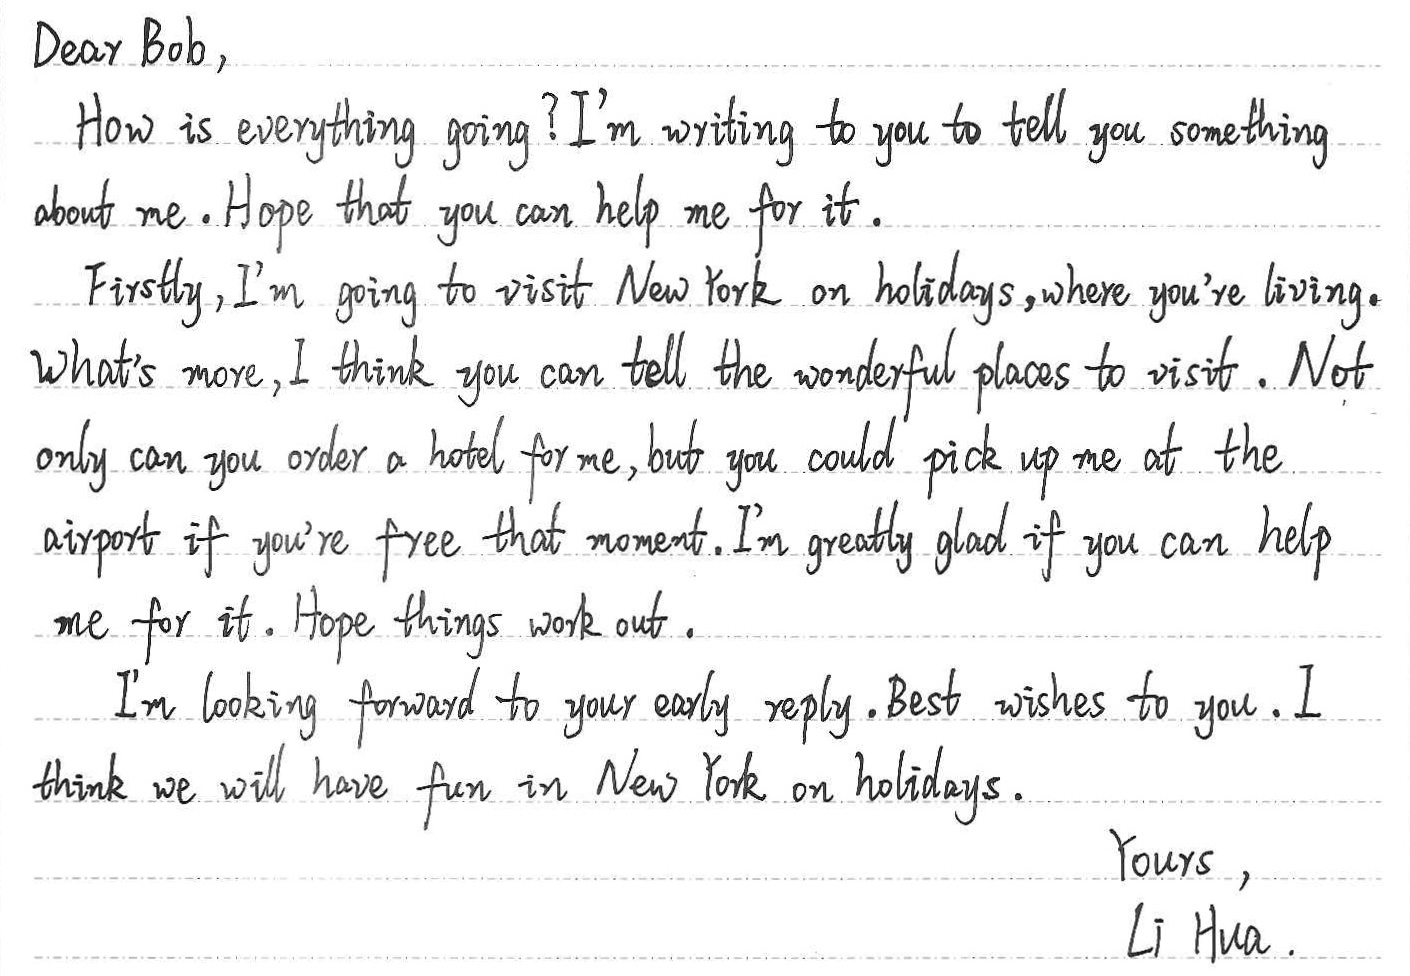 Dear Bob,
How is everything going? I'm writing to you to tell you something
about me. Hope that you can help me for it.
Firstly, I'm going to visit New York on holidays, where you're living.
What's more, I think you can tell the wonderful places to visit. Not
only can you order a hotel for me, but you could pick up me at the
airport if you're free that moment. I'm greatly glad if you can help
me for it. Hope things work out.
I'm looking forward to your early reply. Best wishes to you. I
think we will have fun in New York on holidays.
Yours,
Li Hua.